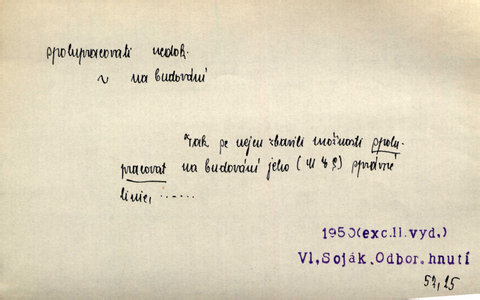 spolupracovati nedok.
~ na budování
Tak se nejen zbavili možnosti spolu-
pracovat na budování jeho ( ) správné
linie, ......
1950(exc.II.vyd.)
Vl,Soják.Odbor.hnutí